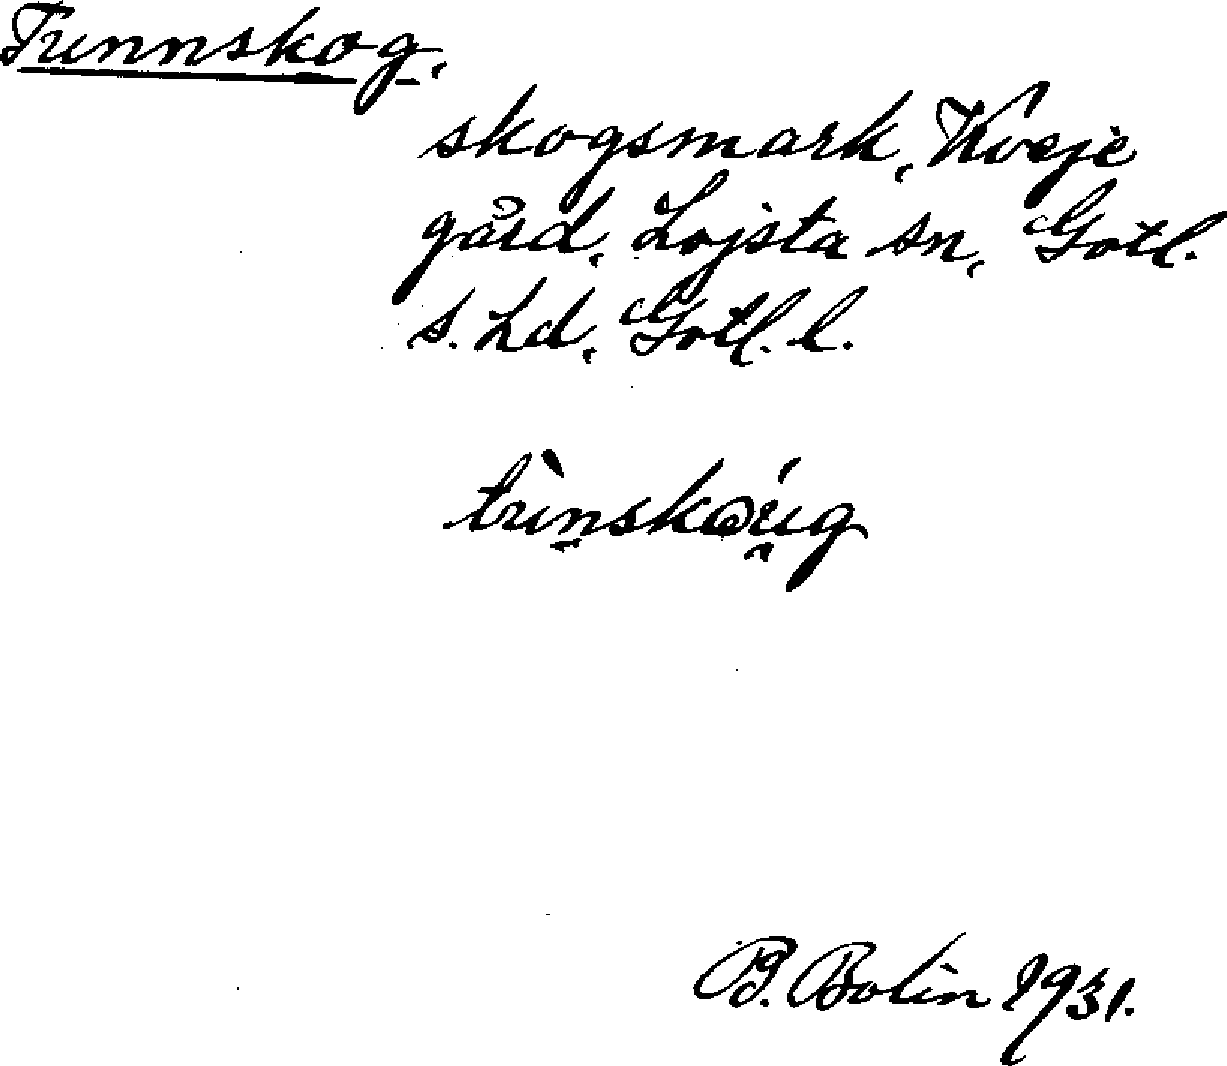 Tunnskog.
skogsmark, Kveje
gård, Lojsta sn, Gotl.
s. hd, Gotl. l.
tùnskǝúg
B. Bolin 1931.